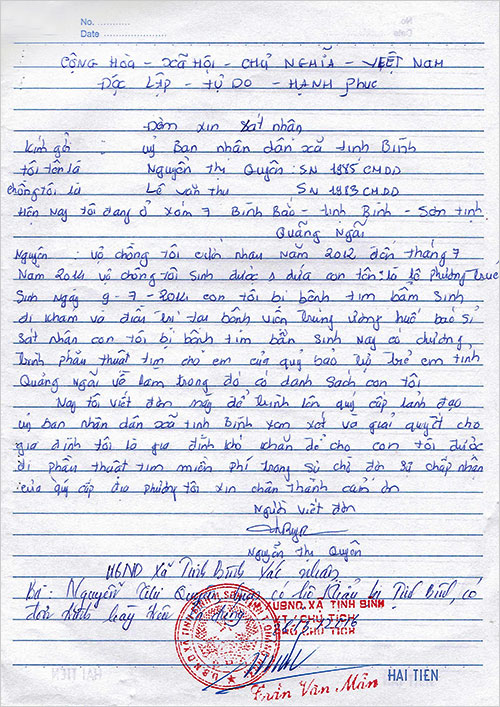 No. ............
Date ......................
CỘNG HOÀ - XÃ HỘI - CHỦ NGHĨA - VIỆT NAM
ĐỘC LẬP - TỰ DO - HẠNH phúc
Đơn xin xát nhận
Kính gởi : uỷ Ban nhân dân xã tịnh Bình
tôi tên là Nguyễn Thị Quyên : SN 1985 CMDD
chồng tôi là Lê văn thu SN 1983 CMDD
Hiện Nay tôi đang ở xóm 7 Bình Bắc - tịnh Bình - Sơn tịnh
Quãng Ngãi
Nguyên : vợ chồng tôi cưới nhau Năm 2012 đến tháng 7
Năm 2014 vợ chồng tôi sinh được 1 đứa con tên là lê phương trúc
Sinh Ngày 9 - 7 - 2014 con tôi bị bệnh tim bẩm Sinh
đi khám và điều trị tại bệnh viện trung ương huế bác sĩ
sát nhận con tôi bị bệnh tim bẩm sinh Nay có chương
trình phẩu thuật tim cho em của quỹ bảo trợ trẻ em tỉnh
Quãng Ngãi về làm trong đó có danh sách con tôi
Nay tôi viết đơn này để trình lên quý cấp lảnh đạo
uỷ ban nhân dân xã tịnh Bình xem xét và giải quyết cho
gia đình tôi là gia đình khó khăn để cho con tôi được
đi phẩu thuật tim miễn phí trong sự chờ đợi sự chấp nhận
của quý cấp địa phương tôi xin chân thành cảm ơn
Người viết đơn
Nguyễn Thị Quyên
UBND Xã Tịnh Bình xác nhận
Bà: Nguyễn Thị Quyên có hộ khẩu tại Tịnh Bình, có
đơn trình bày trên là đúng
XUBND. XÃ TỊNH BÌNH
KT. CHỦ TỊCH
PHÓ CHỦ TỊCH
HAI TIEN
Trần Văn Mẫn